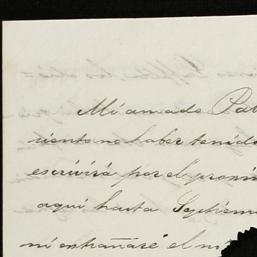 Mi amado Pa
siento no haber tenido
escrivirá por el proxi
aqui hasta Septiem
ni extrañaré el m